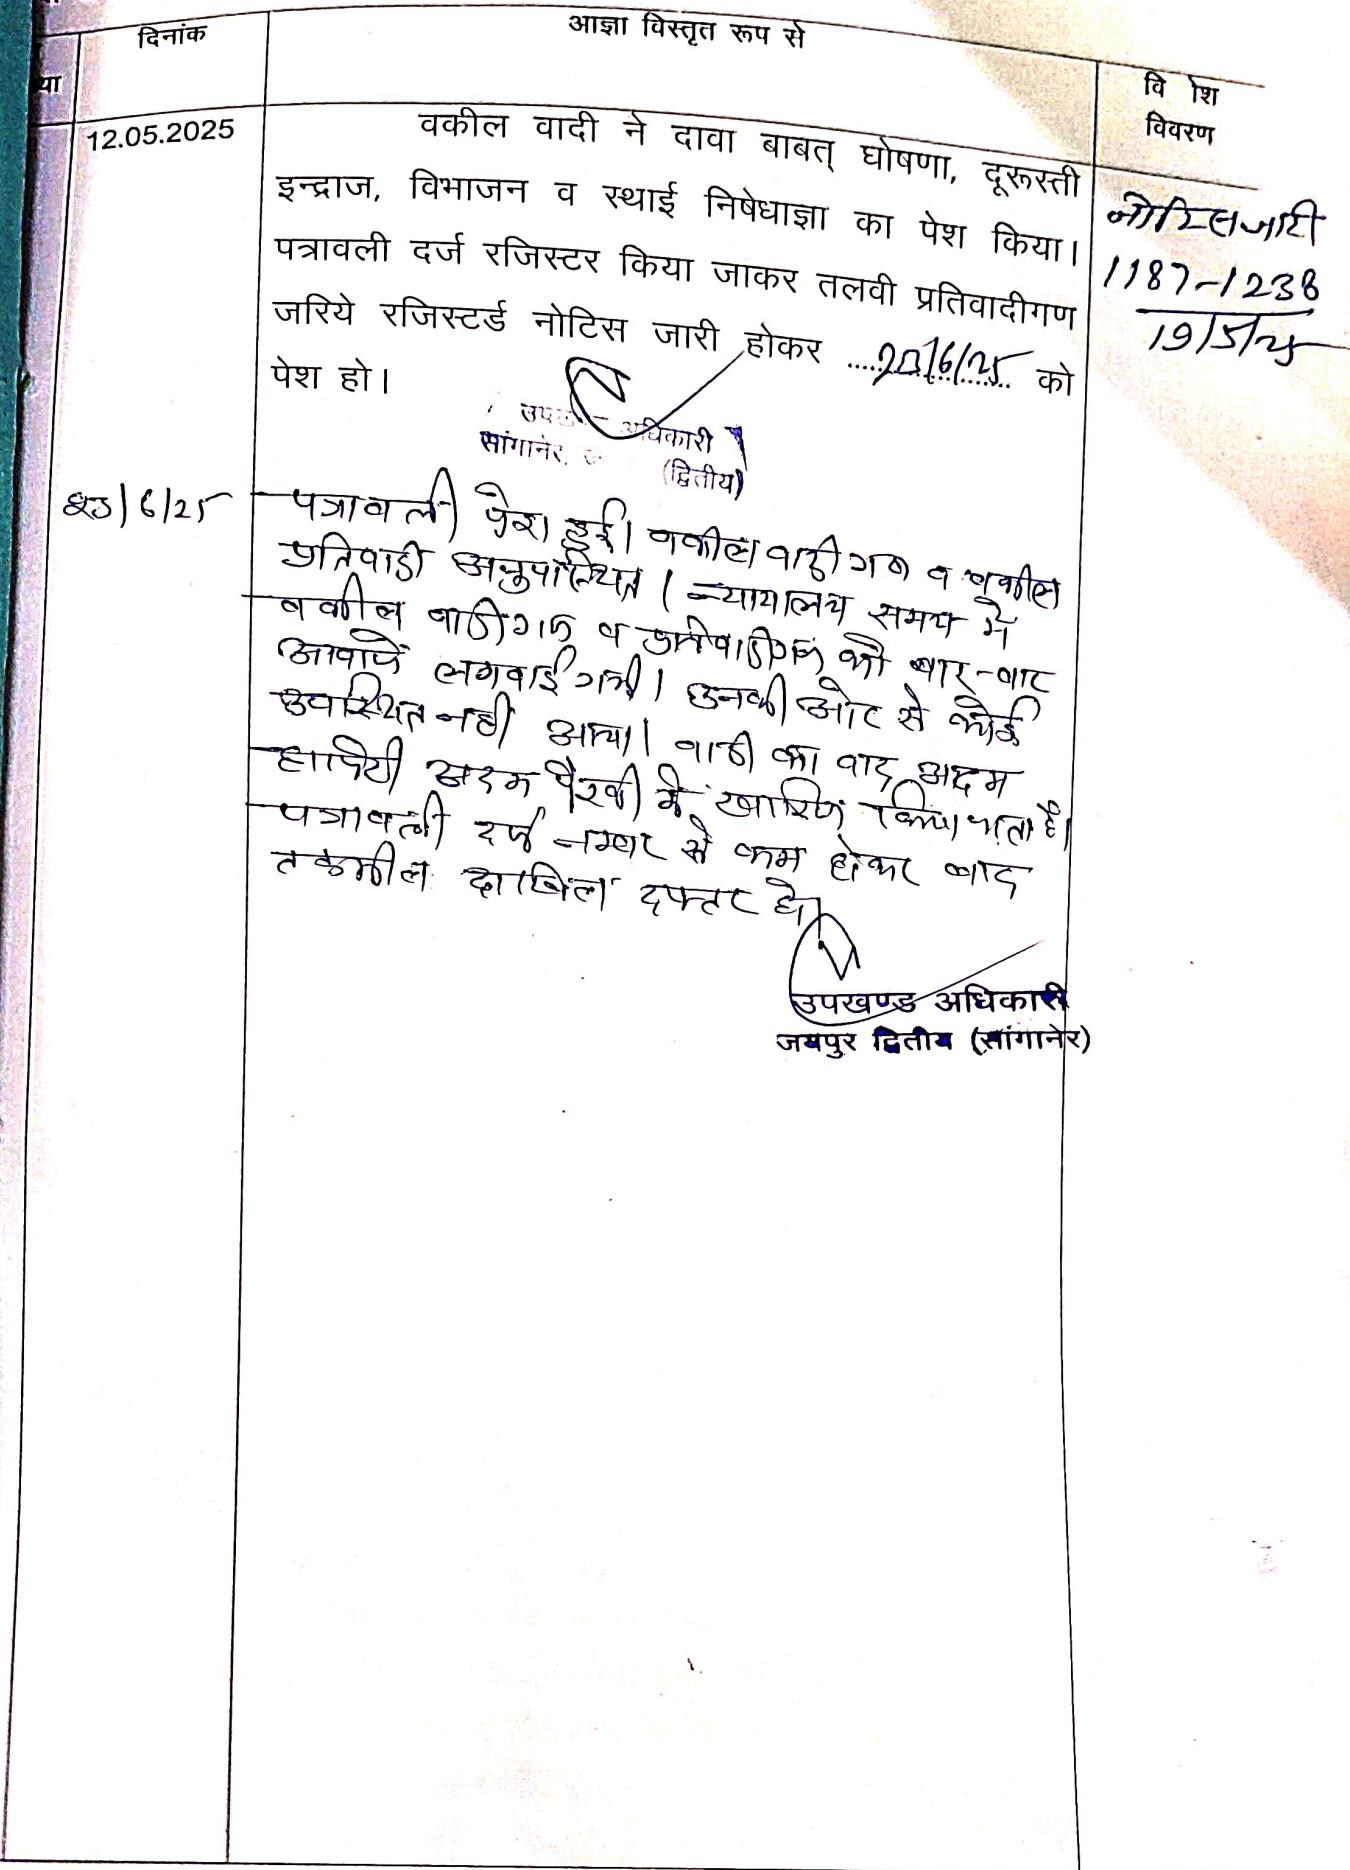 दिनांक
आज्ञा विस्तृत रूप से
या
वि ोश
विवरण
12.05.2025
वकील वादी ने दावा बाबत् घोषणा, दूरूस्ती
इन्द्राज, विभाजन व स्थाई निषेधाज्ञा का पेश किया।
पत्रावली दर्ज रजिस्टर किया जाकर तलवी प्रतिवादीगण
जरिये रजिस्टर्ड नोटिस जारी होकर ....20/6/25.... को
पेश हो।
नोटिस जारी
1187-1238
19/5/25
उपख अधिकारी
सांगानेर, (द्वितीय)
/6/25
पत्रावली पेश हुई। वकील वादीगण व वकील
प्रतिवादी अनुपस्थित। न्यायालय समय में
वकील वादीगण व प्रतिवादीगण को बार-बार
आवाजें लगवाई गयी। उनकी ओर से कोई
उपस्थित नहीं आया। वादी का वाद अदम
हाजिरी अदम पैरवी में खारिज किया जाता है।
पत्रावली दर्ज नम्बर से कम होकर बाद
तकमील दाखिल दफ्तर हो।
उपखण्ड अधिकारी
जयपुर द्वितीय (सांगानेर)